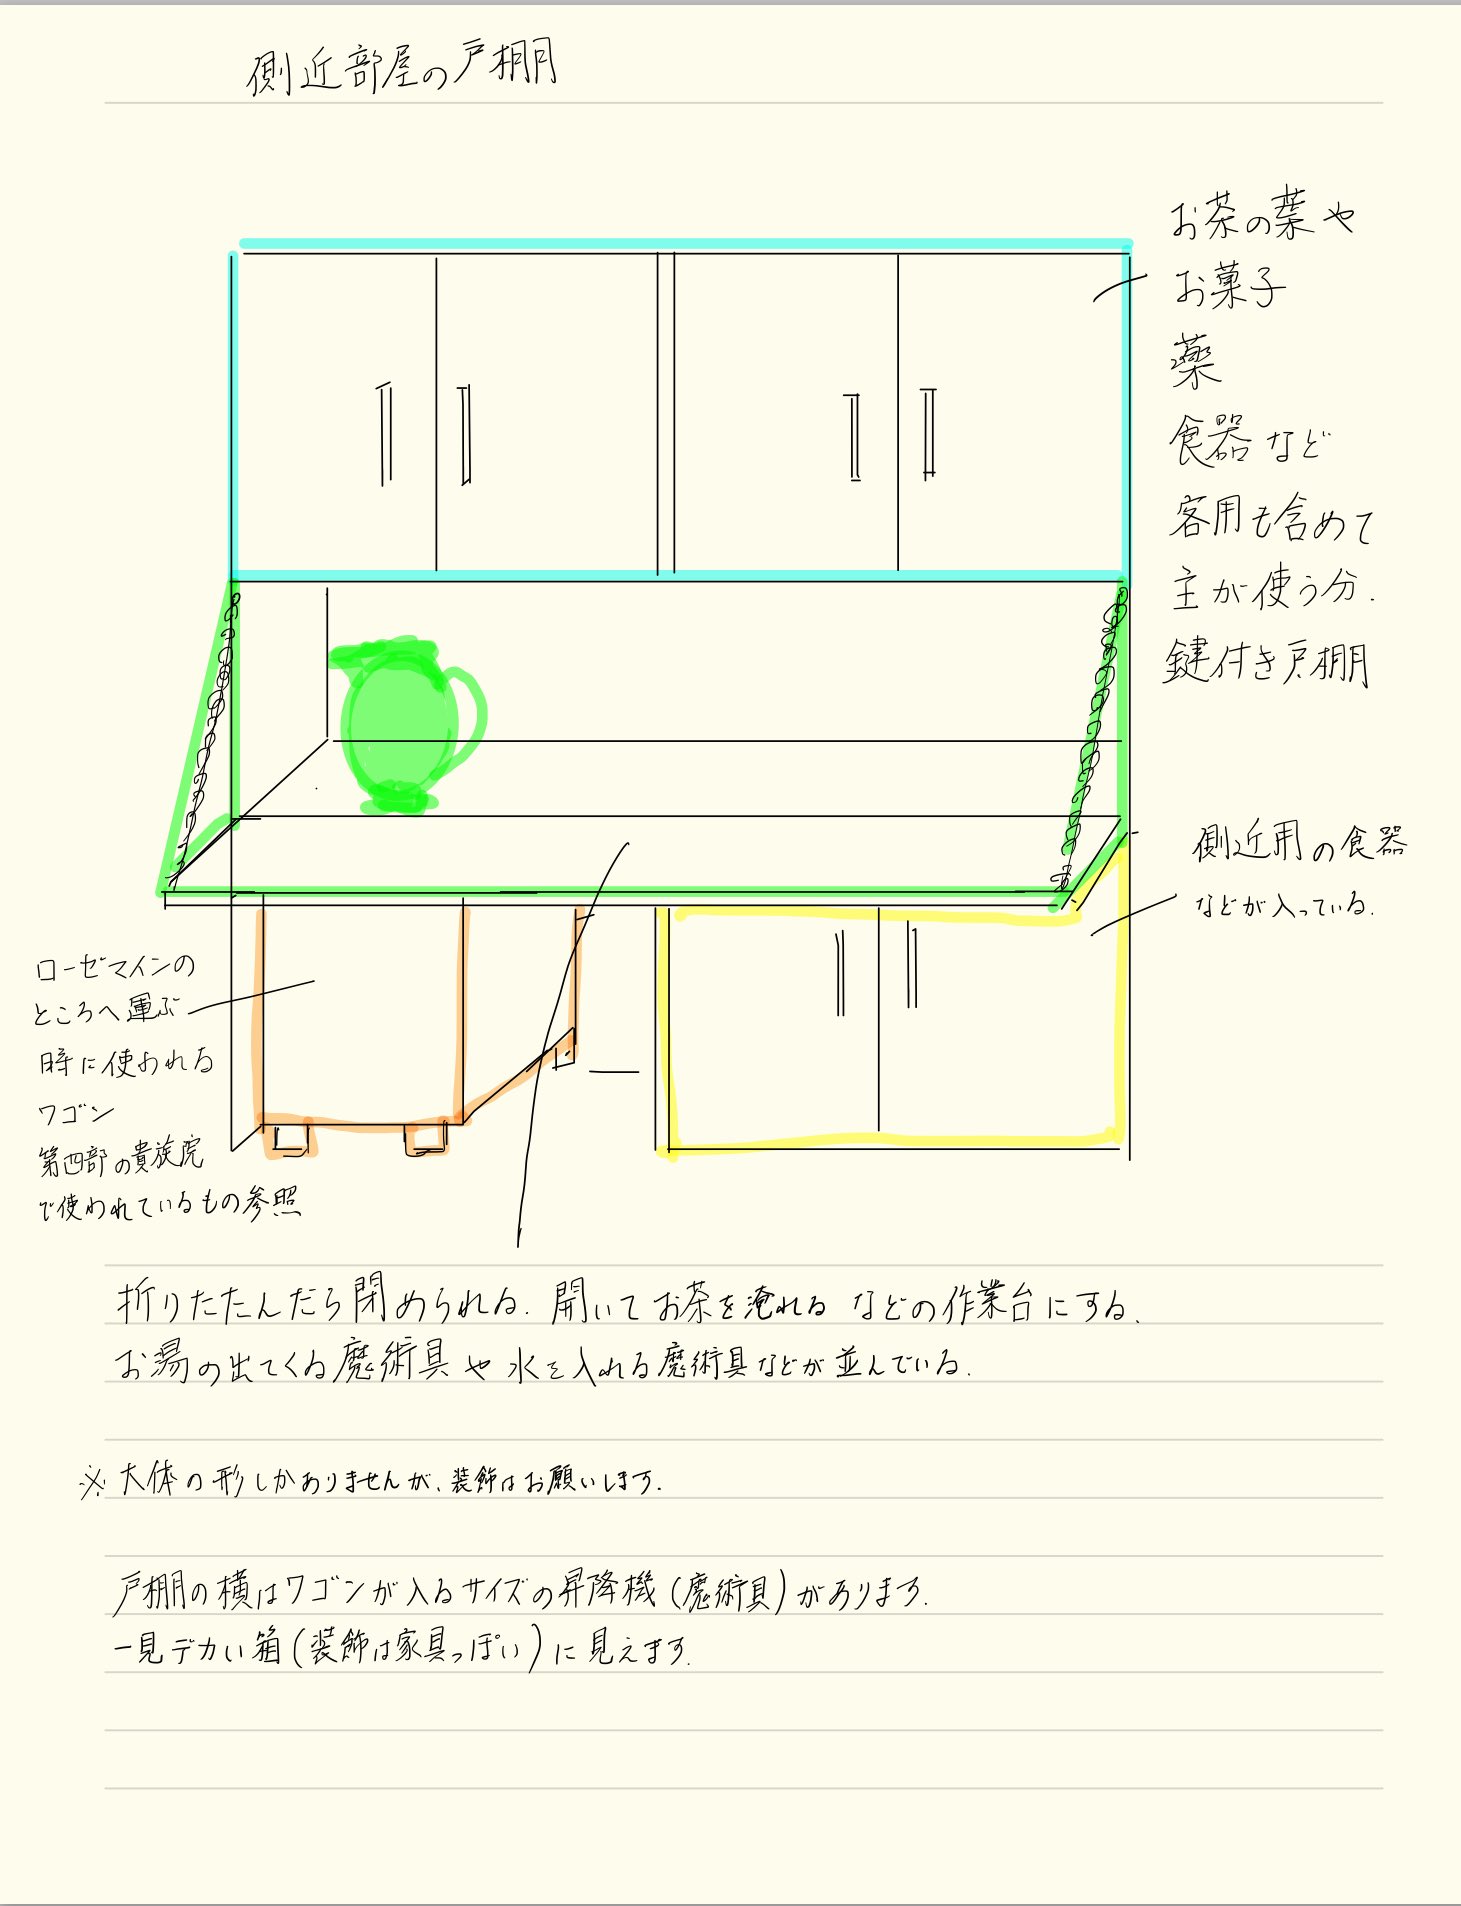 側近部屋の戸棚
お茶の葉や
お菓子
薬
食器など
客用も含めて
主が使う分.
鍵付き戸棚
側近用の食器
などが入っている.
ローゼマインの
ところへ運ぶ
時に使われる
ワゴン
第四部の貴族院
で使われているもの参照
折りたたんだら閉められる. 開いてお茶を淹れる などの作業台にする.
お湯の出てくる魔術具や水を入れる魔術具などが並んでいる.
※大体の形しかありませんが、装飾はお願いします.
戸棚の横はワゴンが入るサイズの昇降機(魔術具)があります.
一見デカい箱(装飾は家具っぽい)に見えます.